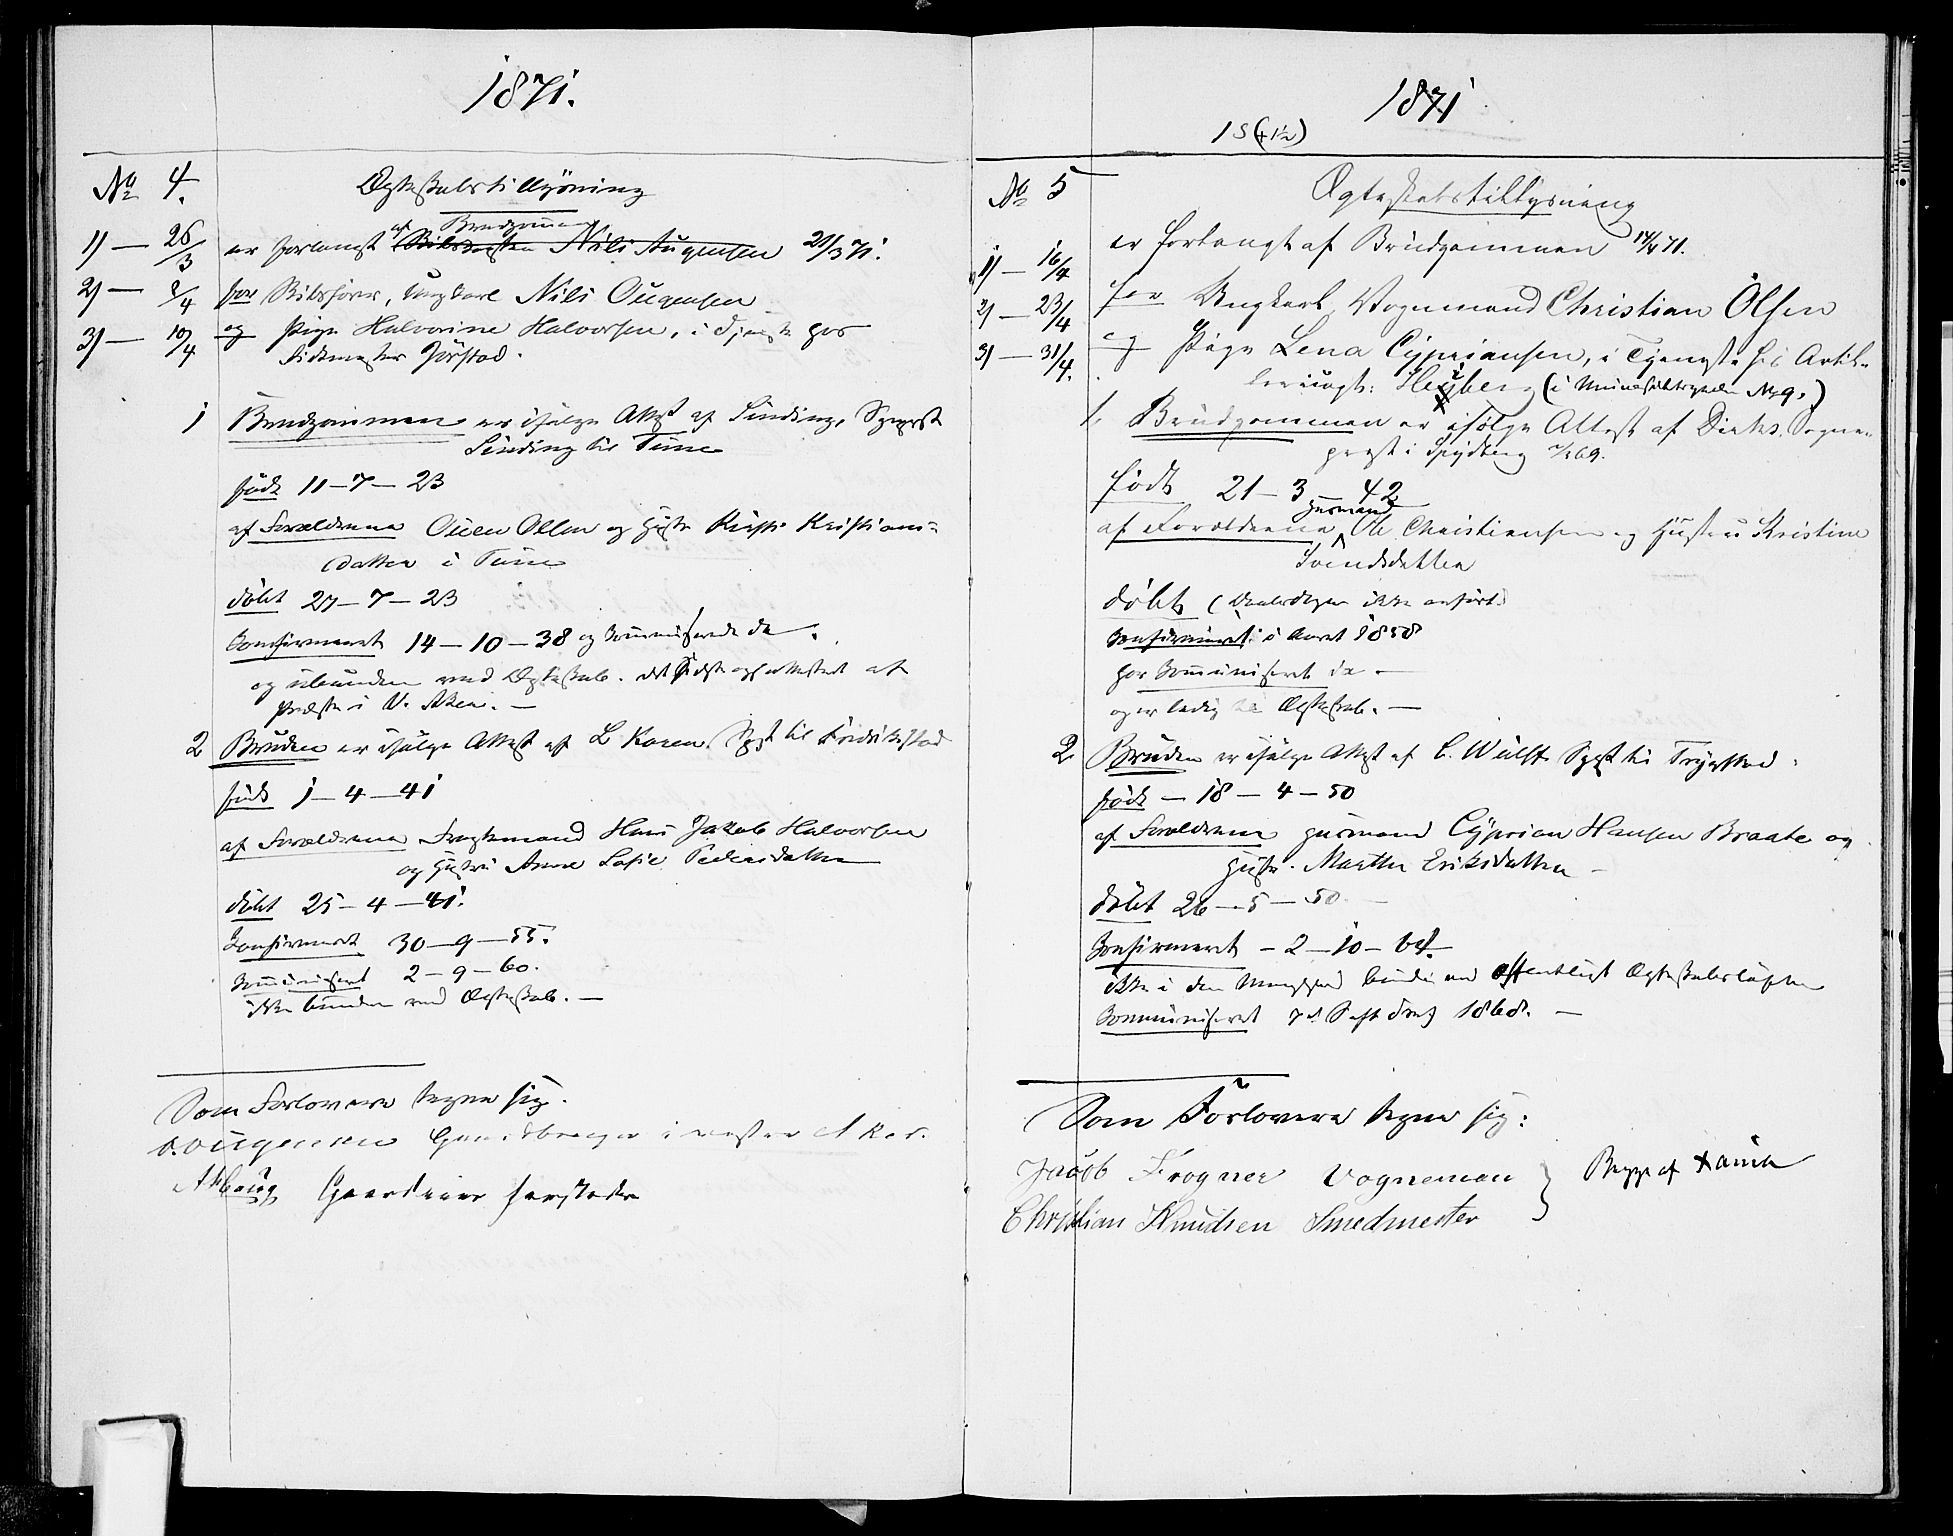 1871.
No 4.
Ægteskabstillysning
1) — 26/3
er forlangt af Brudgommen Nils Augensen 21/3 71.
2) — 2/4
for Skibsfører, Ungkarl Nils Ougensen
3) — 10/4
og Pige Halvorine Halvorsen, i Tjeneste hos
Jørstad.
1 Brudgommen er ifølge Attest af Sinding, Sgprst
Sinding til Tune
født 11–7–23
af Forældrene Ouen Olsen og Hustr Kristians=
datter i Tune
døbt 27–7–23
Konfirmeret 14–10–38 og kommuniserede da.
og ubunden ved Ægteskab. det sidste ogs attesteret af
Præsten i V. Aker. —
2 Bruden er ifølge Attest af L Koren, Spst til Fredrikstad
født 1–4–41
af Forældrene Fragtemand Hans Jakob Halvorsen
og Hustru Anne Sofie Pedersdatter
døbt 25–4–41.
Konfirmeret 30–9–55.
Kommuniseret 2–9–60.
ikke bunden ved Ægteskab. —
Som Forlovere tegne sig.
O. Ougensen i vestre Aker.
Gaardeier
1871
1 S (+ 1½)
No 5
Ægteskabstillysning
er forlangt af Brudgommen 14/4 71.
1) — 16/4
for Ungkarl, Vognmand Christian Olsen
2) — 23/4
og Pige Lena Cypriansen, i Tjeneste hos Artil-
3) — 31/4.
Heyberg (i No 9.)
1. Brudgommen er ifølge Attest af Dirks, Sogne-
prest i Spydberg 69.
født 21–3–42
af Forældrene Husmand Ole Christiansen og Hustru Kristine
Svendsdatter
døbt (Daabsdagen ikke anført)
Konfirmeret i Aaret 1858
har kommuniseret da —
og er ledig Ægteskab. —
2. Bruden er ifølge Attest af C. Wulff Spgst til Trygstad.
født — 18–4–50
af Forældrene Husmand Cyprian Hansen Braate og
Hustr. Marthe Eriksdatter —
døbt 26–5–50.
Konfirmeret – 2–10–64.
ikke i den Menighed bunden ved offentligt Ægteskabsløfte
Kommuniseret 1868. —
Som Forlovere tegne sig:
Jacob Frogner Vogneman
Christian Knudsen Smedmester
Begge af